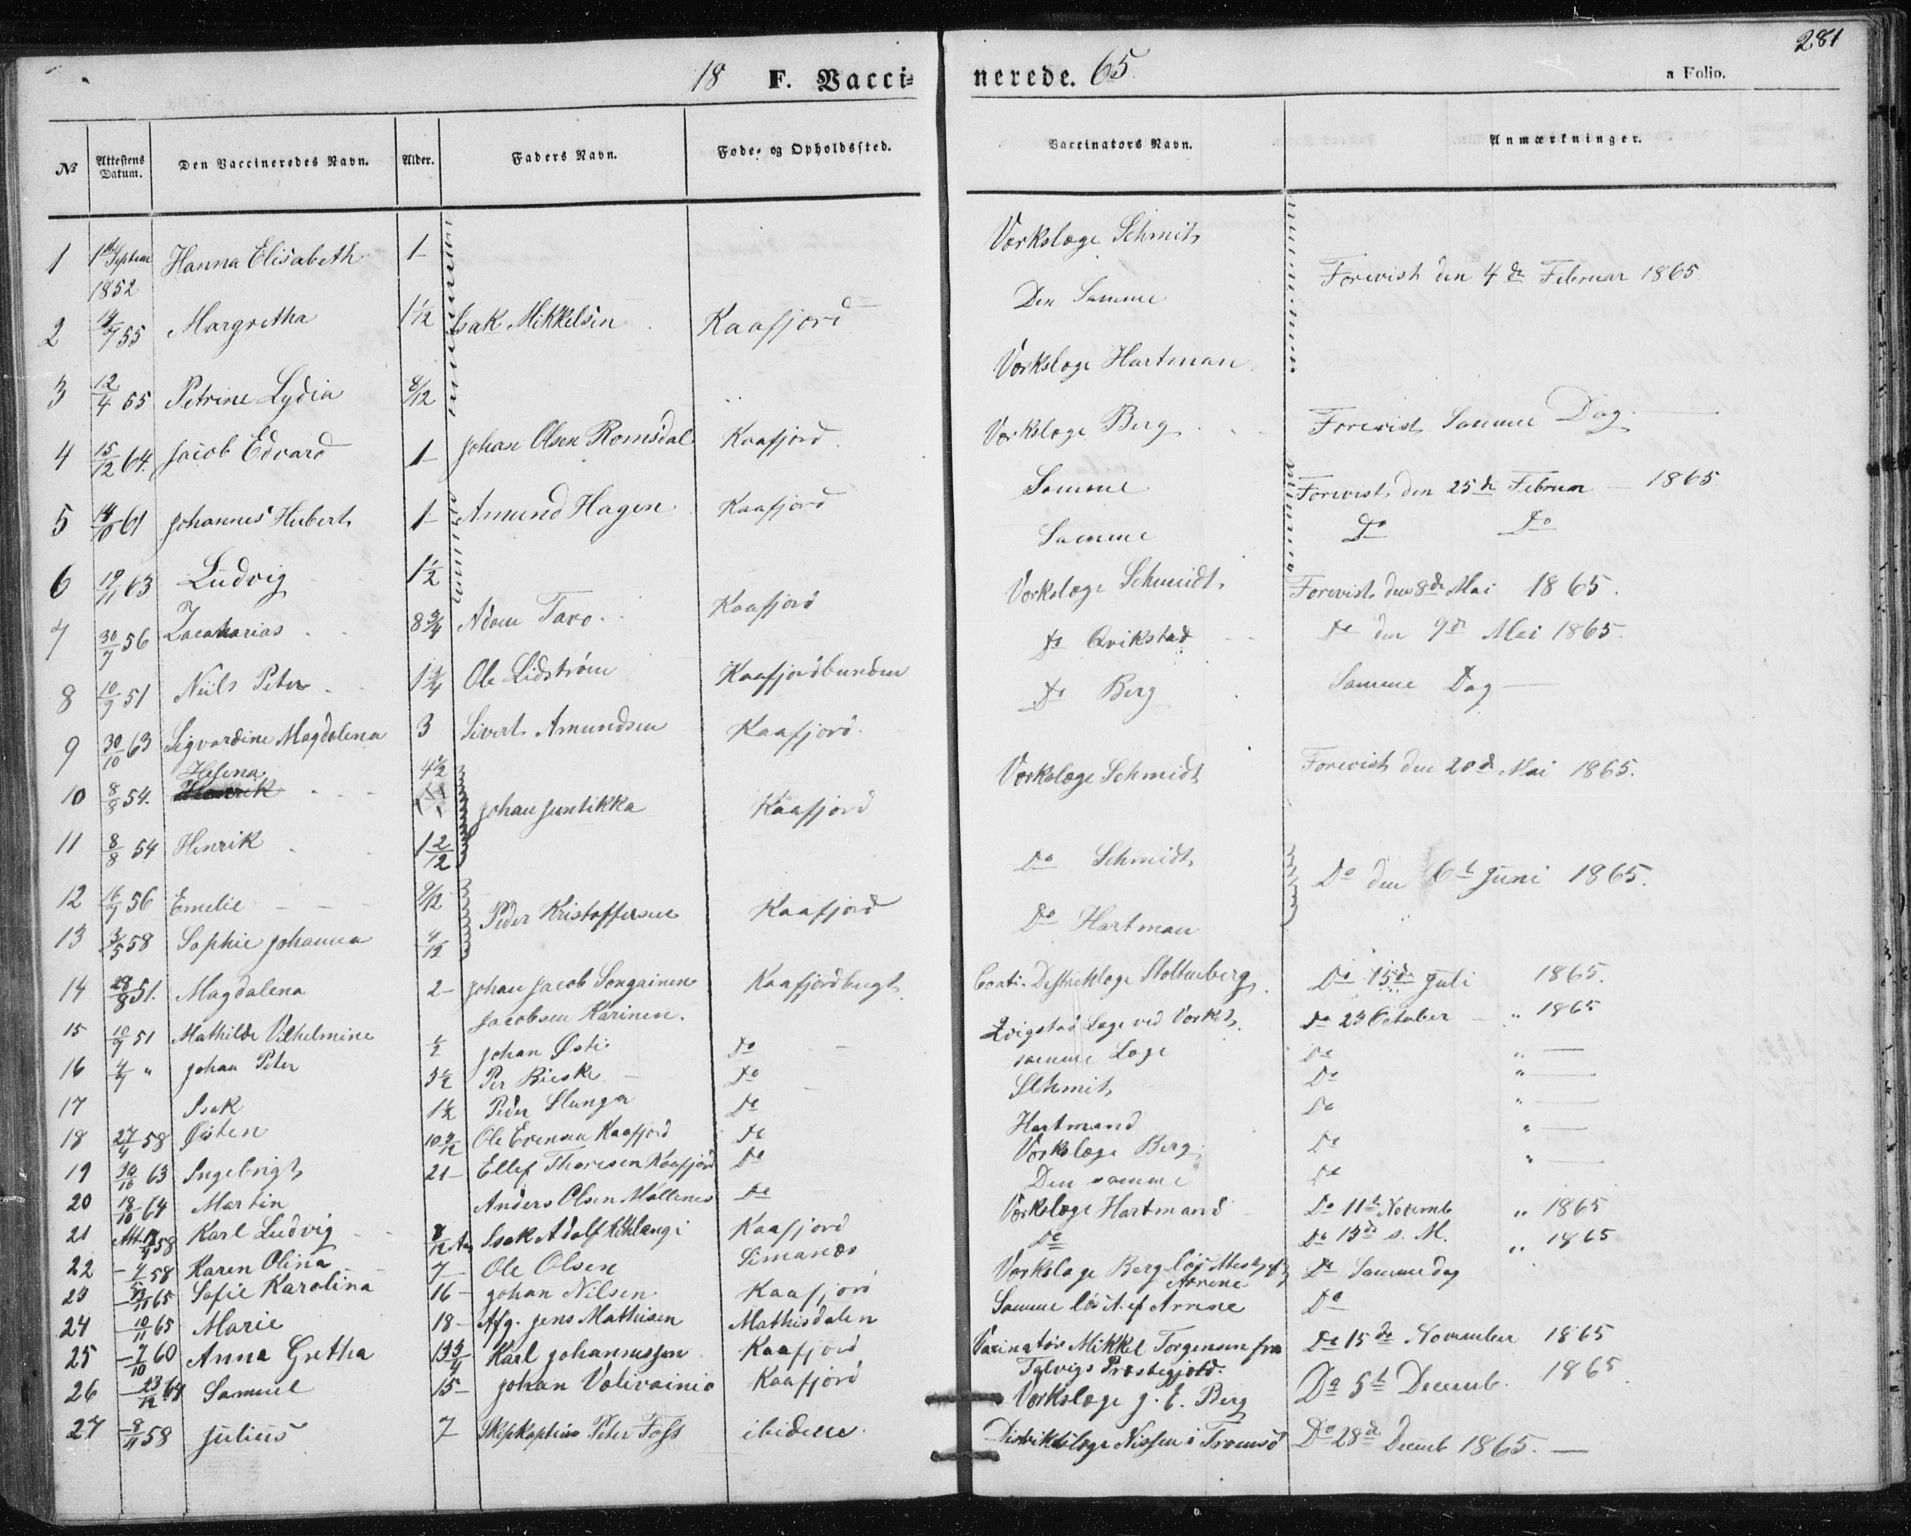 281
18 F. Vacci- nerede. 65.
a Folio.
No Attestens Datum. Den Vaccineredes Navn. Alder. Faders Navn. Føde- og Opholdssted. Vaccinators Navn. Anmærkninger.
1 1852 Hanna Elisabeth 1- Værkslæge Schmit
2 55 Margretha 1½ Isak Mikkelsen Kaafjord Den Samme Forevist den 4de Februar 1865
3 12/4 65 Petrine Lydia 8/12 Værkslæge Hartman
4 15/12 64. Jacob Edvard 1- Johan Olsen Romsdal Kaafjord. Værkslæge Berg Forevist Samme Dag
5 61 Johannes Hubert 1- Amund Hagen Kaafjord Samme Forevist den 25de Februar 1865
6 19/11 63 Ludvig 1½ Samme Do Do
7 30/9 56 Zacharias 8¾ Adam Taro Kaafjord Værkslæge Schmidt Forevist den 8de Mai 1865.
8 10/9 51 Niils Peter 1¾ Ole Lidstrøm Kaafjordbunden Do Qvikstad Do den 9de Mai 1865.
9 30/10 63 Sigvardine Magdalena 3 Sivert Amundsen Kaafjord. Do Berg Samme Dag
10 8/8 54. Helena 4½ Johan Juntikka Kaafjord Værkslæge Schmidt Forevist den 20de Mai 1865.
11 8/8 54 Henrik 1 2/12 Do Schmidt
12 16/9 56 Emelie 9/12 Peder Kristoffersen Kaafjord Do den 6t Juni 1865.
13 3/5 58 Sophie Johanna Do Hartman
14 28/8 51. Magdalena 2- Johan Jacob Songainen Kaafjordbugt Distrikslæge Stoltenberg. Do 15de Juli 1865.
15 10/9 51 Mathilde Vilhelmine Jacobsen Karinen. Qvigstad Læge ved Værket. Do 23 October " 1865
16 4/9 " Johan Peter ½ Johan Østi Do samme Læge Do "
17 Isak 3½ Per Do Schmit Do "
18 27/4 58 Østen 1½ Peder Slunga Do Hartmand Do "
19 30/10 63 Ingebrigt Ole Evensen Kaafjord Do Værkslæge Berg Do "
20 18/10 64 Martin 21- Ellef Thoresen Kaafjord Do Den samme Do "
21 58 Karl Ludvig 8/12 Anders Olsen Møllenes Do Værkslæge Hartmand Do 11t Novemb " 1865
22 58 Karen Olina 7- Isak Adolf Kaafjord Do Do 13de s. M. " 1865
23 65 Sofie Karolina 16- Ole Olsen Simanæs Værkslæge Berg Do Samme dag
24 10/11 65 Marie 18- Johan Nilsen Kaafjord Samme Do
25 7/10 60 Anna Gretha 13¾ Afg. Jens Mathisen Mathisdalen Vaxinatør Mikkel Torgensen fra Do 15de November 1865
Talvigs Præstegjeld.
26 23/12 64 Samuel 15- Karl Johannessen Kaafjord Værkslæge J. E. Berg Do 5t Decemb. 1865
Johan Kaafjord
27 9/11 58 Julius 7- Peter Foss ibidem. Distrikslæge Nissen i Tromsø Do 28de Decemb 1865.